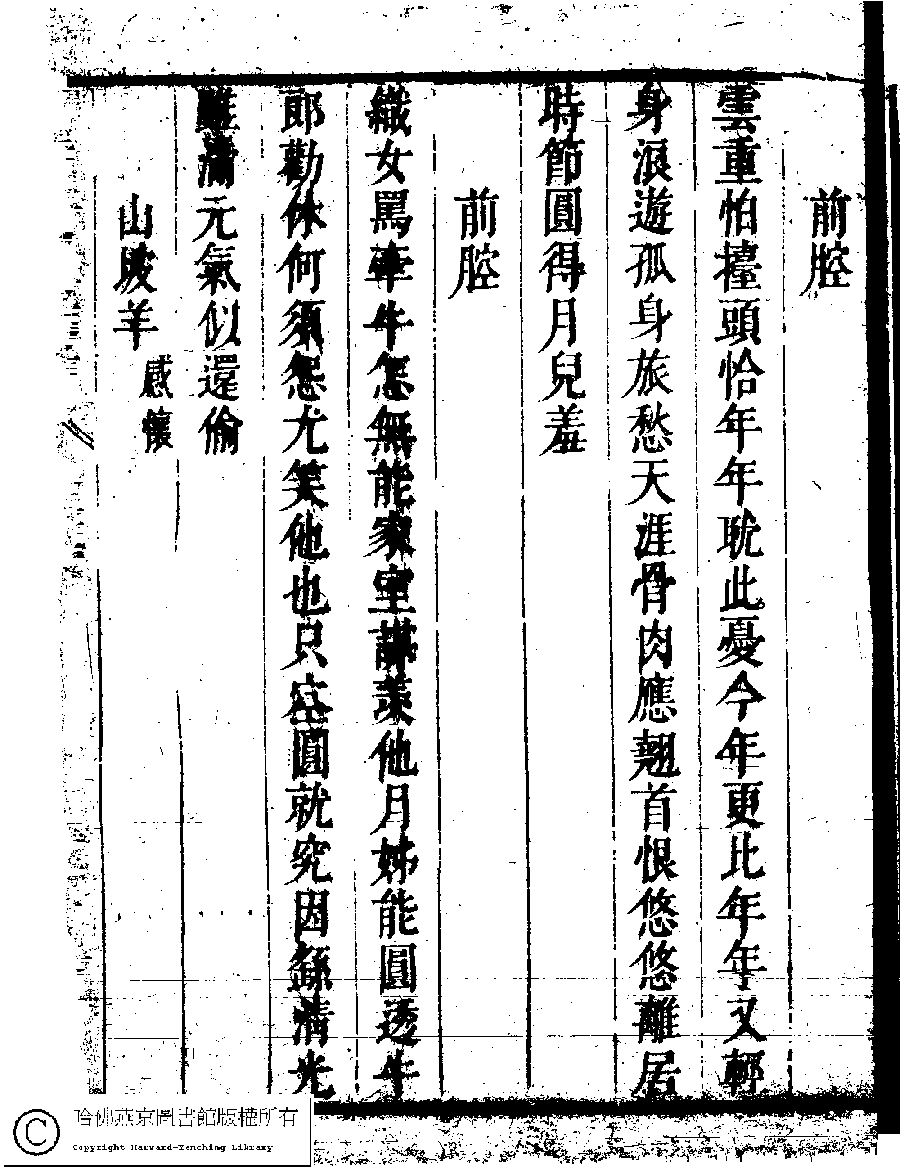 前腔
雲重怕擡頭恰年年耽此憂今年更比年年又輕
身浪遊孤身旅愁天涯骨肉應翹首恨悠悠離居
時節圓得月兒羞
前腔
織女罵牽牛怎無能家室謀羨他月姊能圓透牛
郎勸休何須怨尤笑他也只空圓就究因繇清光
雖滿元氣似還偷
山坡羊 感懷
哈佛燕京圖書館版權所有
Copyright Harvard-Yenching Library